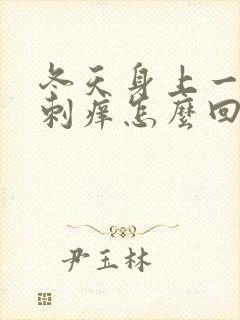 冬天身上一
刺痒怎麽回
尹玉林